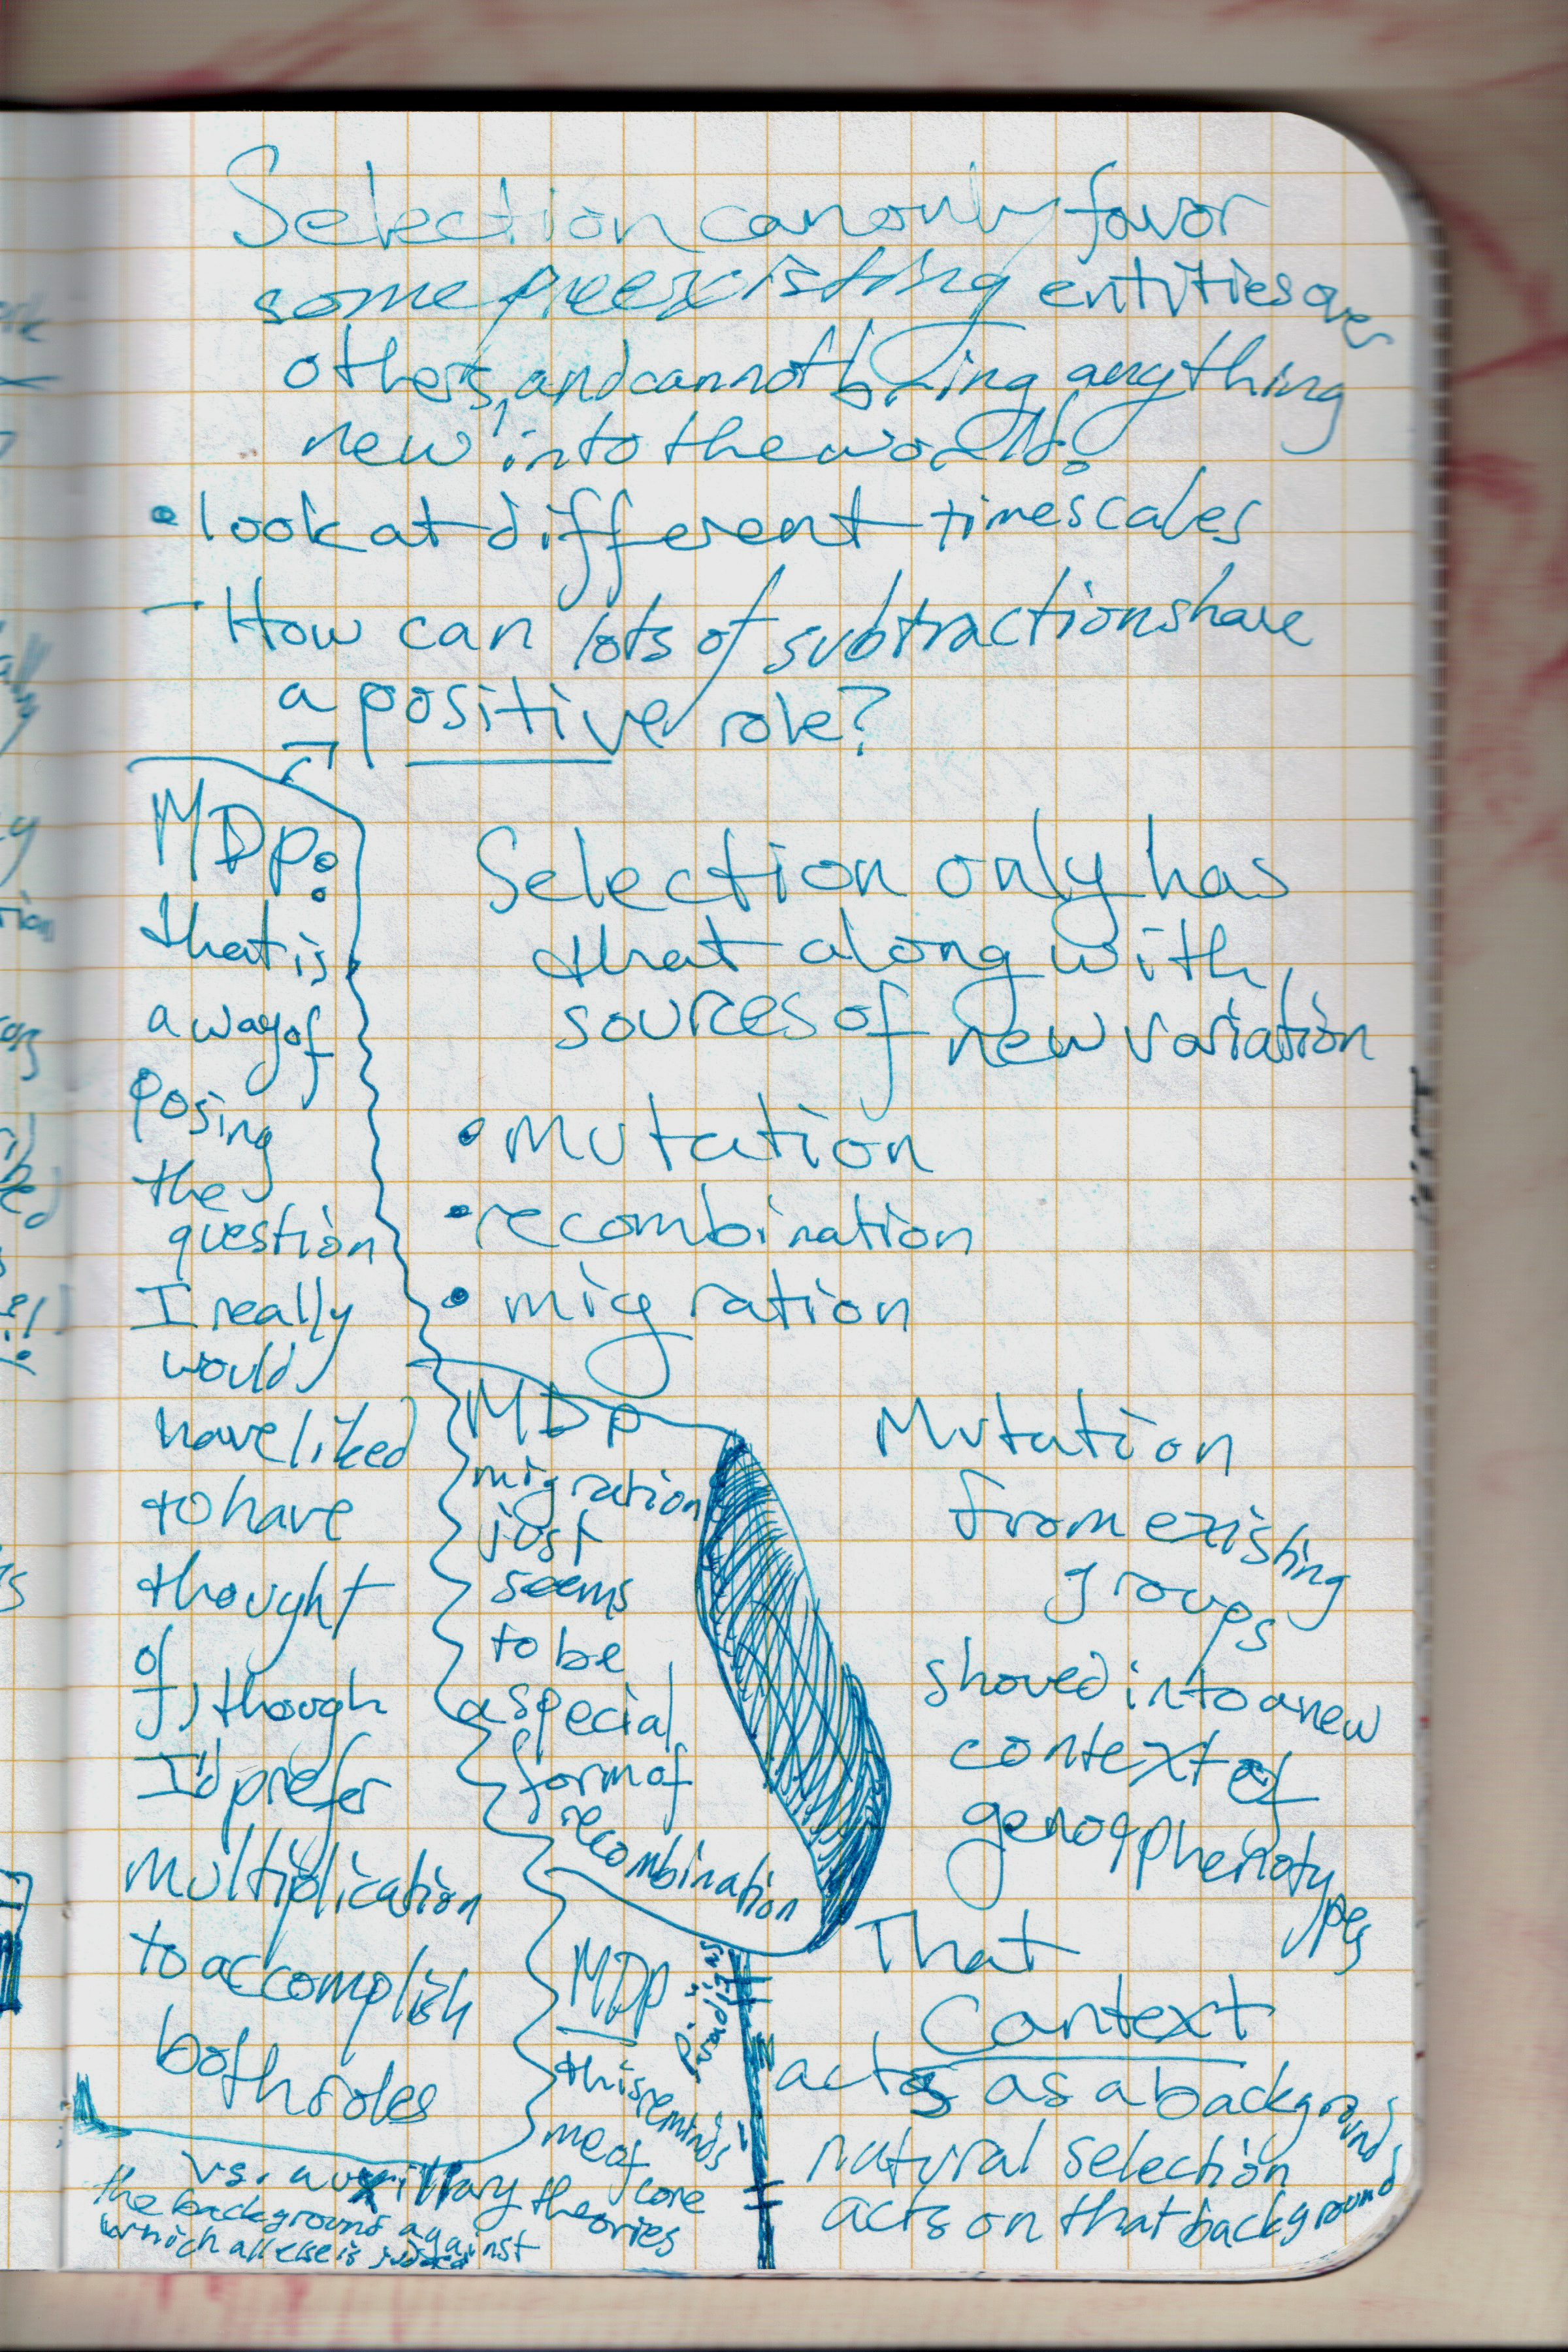 Selection can only favor
some preexisting entities over
others, and cannot bring anything
new into the world?
• look at different timescales
- How can lots of subtractions have
a positive role?
MDP:
that is
a way of
posing
the
question
I really
would
have liked
to have
thought
of, though
I'd prefer
multiplication
to accomplish
both roles
Selection only has
that along with
sources of new variation
• mutation
• recombination
• migration
MDP
migration
just
seems
to be
a special
form of
recombination
Mutation
from existing
groups
shoved into a new
context of
geno & phenoty
pes
That
Context
acts as a background
natural selection
acts on that background
MDP
this reminds
me of
core
theories
vs. auxillary
the background against
which all else is judged